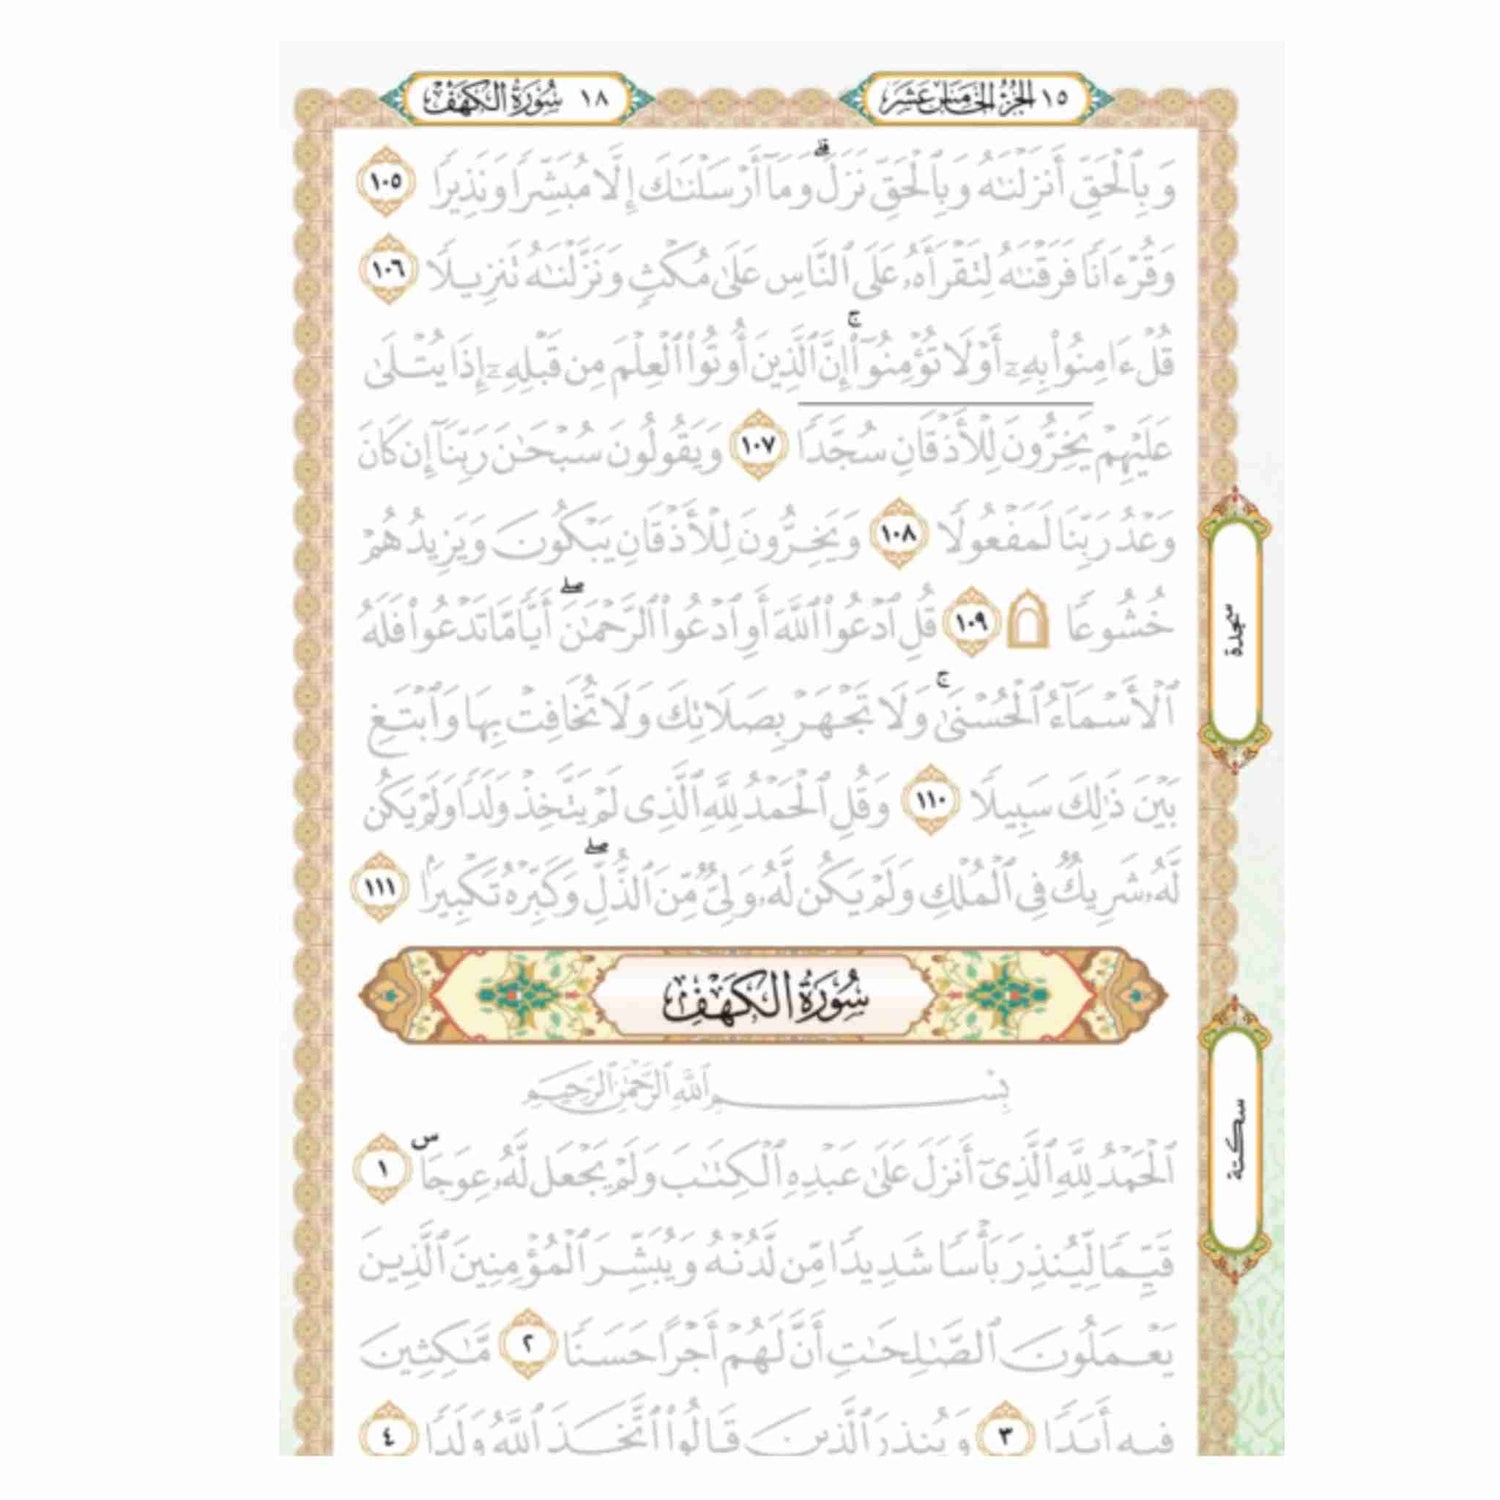 ١٥ الجزء الخامس عشر
١٨ سُورَةُ الكَهْفِ
وَبِٱلْحَقِّ أَنزَلْنَٰهُ وَبِٱلْحَقِّ نَزَلَ ۗ وَمَآ أَرْسَلْنَٰكَ إِلَّا مُبَشِّرًا وَنَذِيرًا ١٠٥
وَقُرْءَانًا فَرَقْنَٰهُ لِتَقْرَأَهُۥ عَلَى ٱلنَّاسِ عَلَىٰ مُكْثٍ وَنَزَّلْنَٰهُ تَنزِيلًا ١٠٦
قُلْ ءَامِنُوا۟ بِهِۦٓ أَوْ لَا تُؤْمِنُوٓا۟ ۚ إِنَّ ٱلَّذِينَ أُوتُوا۟ ٱلْعِلْمَ مِن قَبْلِهِۦٓ إِذَا يُتْلَىٰ
عَلَيْهِمْ يَخِرُّونَ لِلْأَذْقَانِ سُجَّدًا ١٠٧ وَيَقُولُونَ سُبْحَٰنَ رَبِّنَآ إِن كَانَ
وَعْدُ رَبِّنَا لَمَفْعُولًا ١٠٨ وَيَخِرُّونَ لِلْأَذْقَانِ يَبْكُونَ وَيَزِيدُهُمْ
خُشُوعًا ١٠٩ قُلِ ٱدْعُوا۟ ٱللَّهَ أَوِ ٱدْعُوا۟ ٱلرَّحْمَٰنَ ۖ أَيًّا مَّا تَدْعُوا۟ فَلَهُ
ٱلْأَسْمَآءُ ٱلْحُسْنَىٰ ۚ وَلَا تَجْهَرْ بِصَلَاتِكَ وَلَا تُخَافِتْ بِهَا وَٱبْتَغِ
بَيْنَ ذَٰلِكَ سَبِيلًا ١١٠ وَقُلِ ٱلْحَمْدُ لِلَّهِ ٱلَّذِى لَمْ يَتَّخِذْ وَلَدًا وَلَمْ يَكُن
لَّهُۥ شَرِيكٌ فِى ٱلْمُلْكِ وَلَمْ يَكُن لَّهُۥ وَلِىٌّ مِّنَ ٱلذُّلِّ ۖ وَكَبِّرْهُ تَكْبِيرًۢا ١١١
سُورَةُ الكَهْفِ
بِسْمِ ٱللَّهِ ٱلرَّحْمَٰنِ ٱلرَّحِيمِ
ٱلْحَمْدُ لِلَّهِ ٱلَّذِىٓ أَنزَلَ عَلَىٰ عَبْدِهِ ٱلْكِتَٰبَ وَلَمْ يَجْعَل لَّهُۥ عِوَجَاۜ ١
قَيِّمًا لِّيُنذِرَ بَأْسًا شَدِيدًا مِّن لَّدُنْهُ وَيُبَشِّرَ ٱلْمُؤْمِنِينَ ٱلَّذِينَ
يَعْمَلُونَ ٱلصَّٰلِحَٰتِ أَنَّ لَهُمْ أَجْرًا حَسَنًا ٢ مَّٰكِثِينَ
فِيهِ أَبَدًا ٣ وَيُنذِرَ ٱلَّذِينَ قَالُوا۟ ٱتَّخَذَ ٱللَّهُ وَلَدًا ٤
سجدة
سكتة